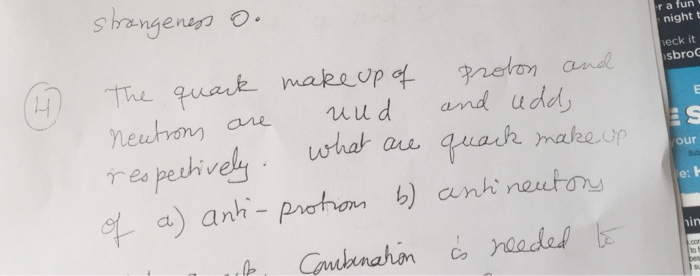 strangeness 0.
(4) The quark makeup of proton and
neutrons are uud and udd,
respectively. what are quark makeup
of a) anti-protrom b) antineutrons
Combination is needed to
r a fun
night t
eck it
sbroC
E
ES
our
e: H